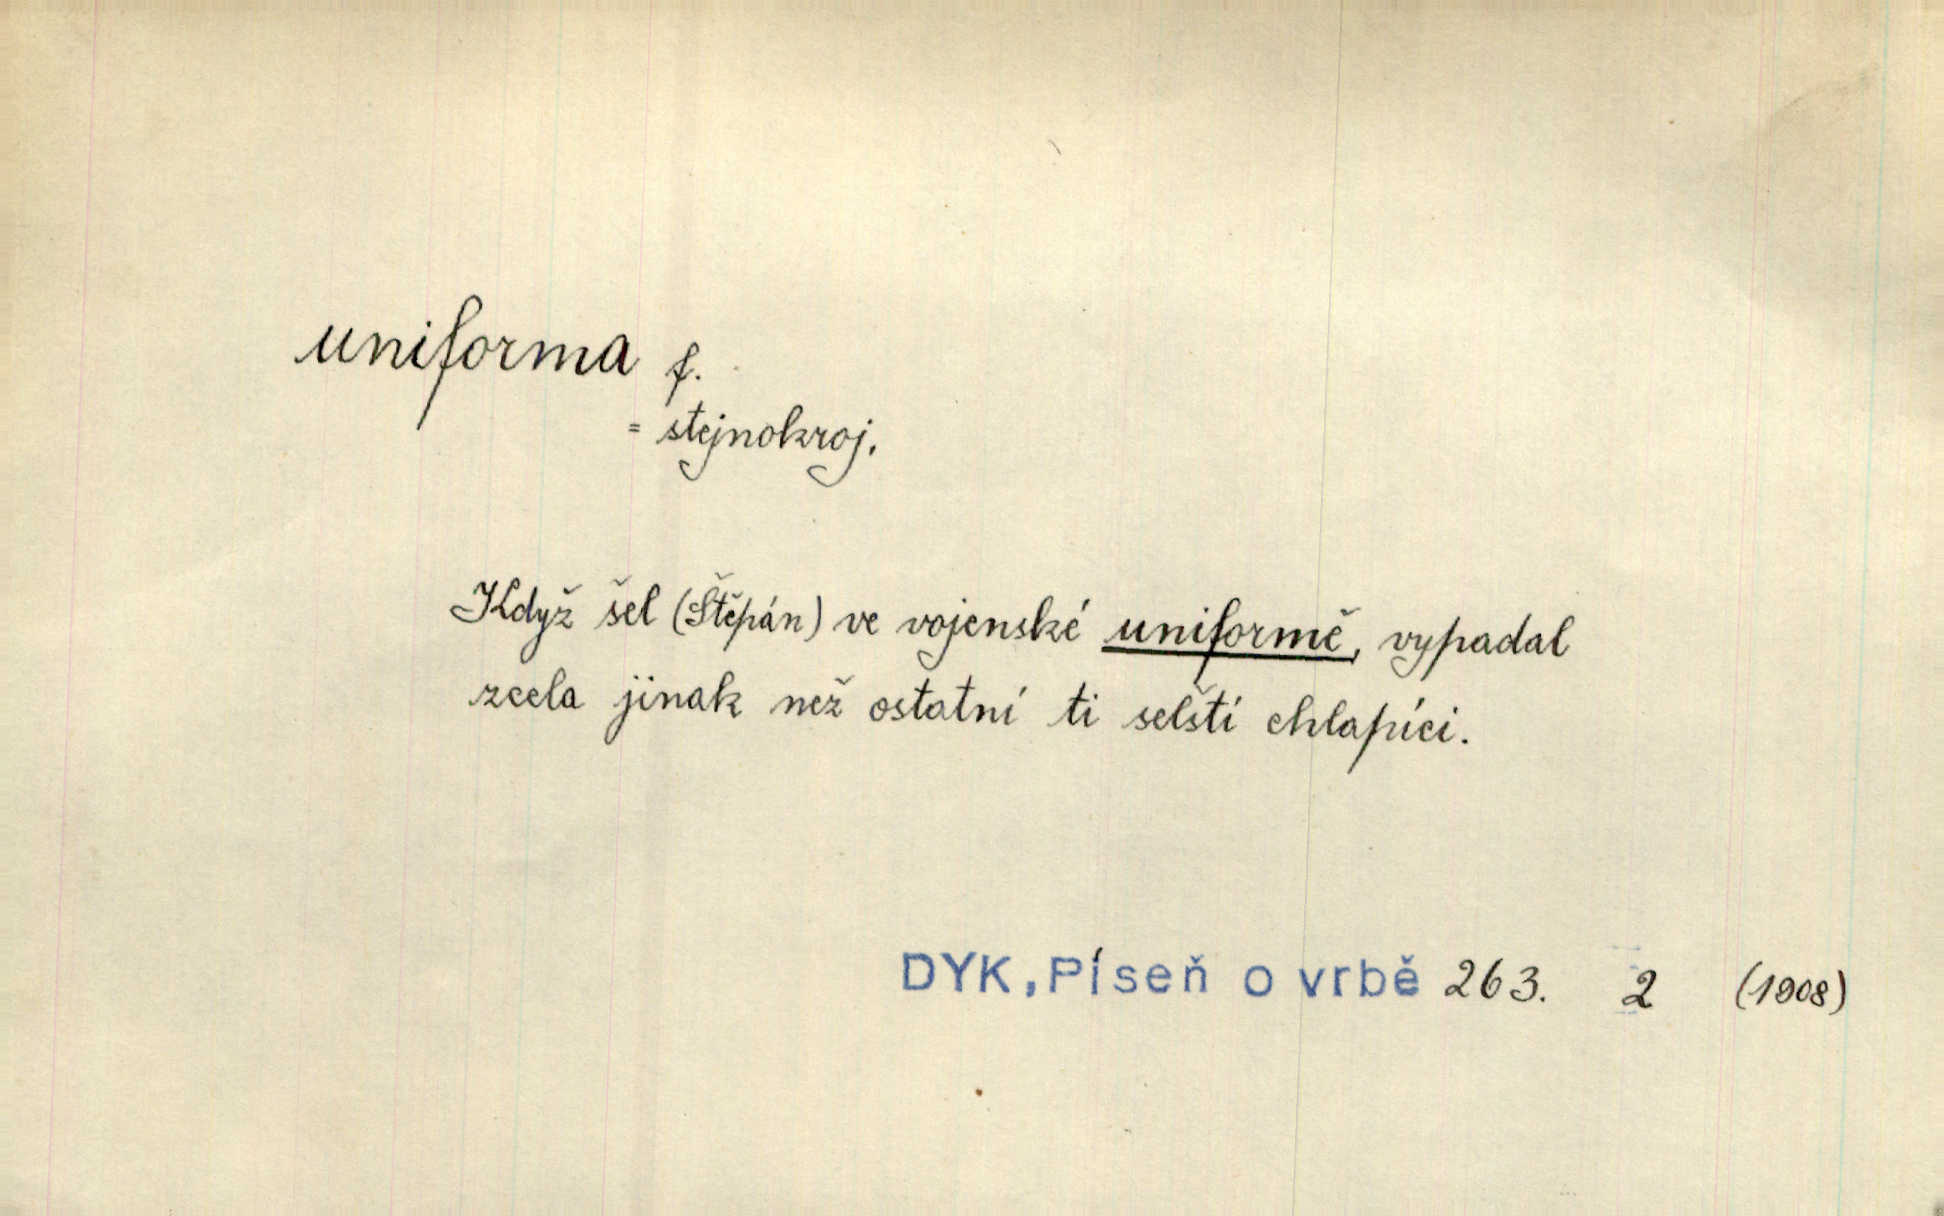 uniforma f.
= stejnokroj.
Když šel (Štěpán) ve vojenské uniformě, vypadal
zcela jinak než ostatní ti selští chlapíci.
DYK, Píseň o vrbě 263. 2 (1908)